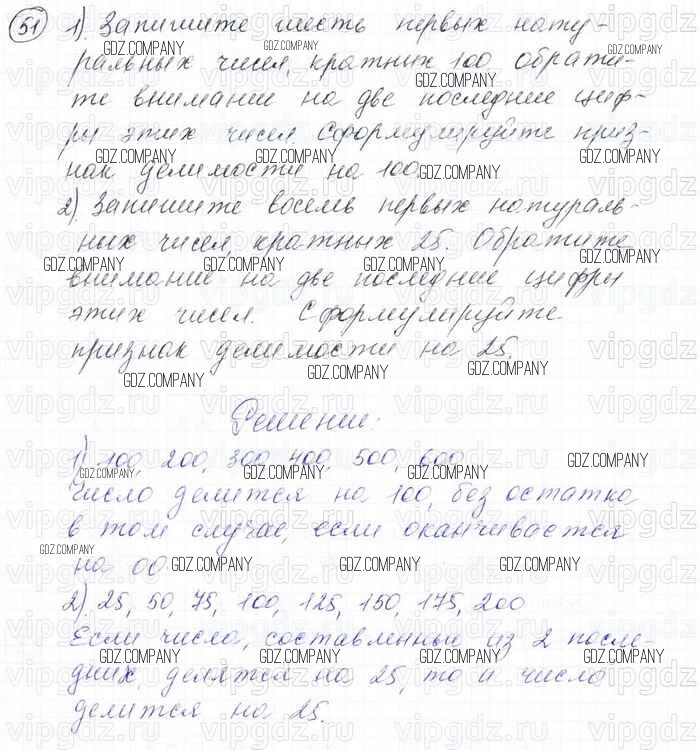 51 1) Запишите шесть первых нату-
ральных чисел, кратных 100. Обрати-
те внимание на две последние циф-
ры этих чисел. Сформулируйте приз-
нак делимости на 100.
2) Запишите восемь первых натураль-
ных чисел, кратных 25. Обратите
внимание на две последние цифры
этих чисел. Сформулируйте
признак делимости на 25.
Решение:
1) 100, 200, 300, 400, 500, 600
Число делится на 100, без остатка
в том случае, если оканчивается
на 00
2) 25, 50, 75, 100, 125, 150, 175, 200
Если число, составленный из 2 после-
дних, делятся на 25, то и число
делится на 25.